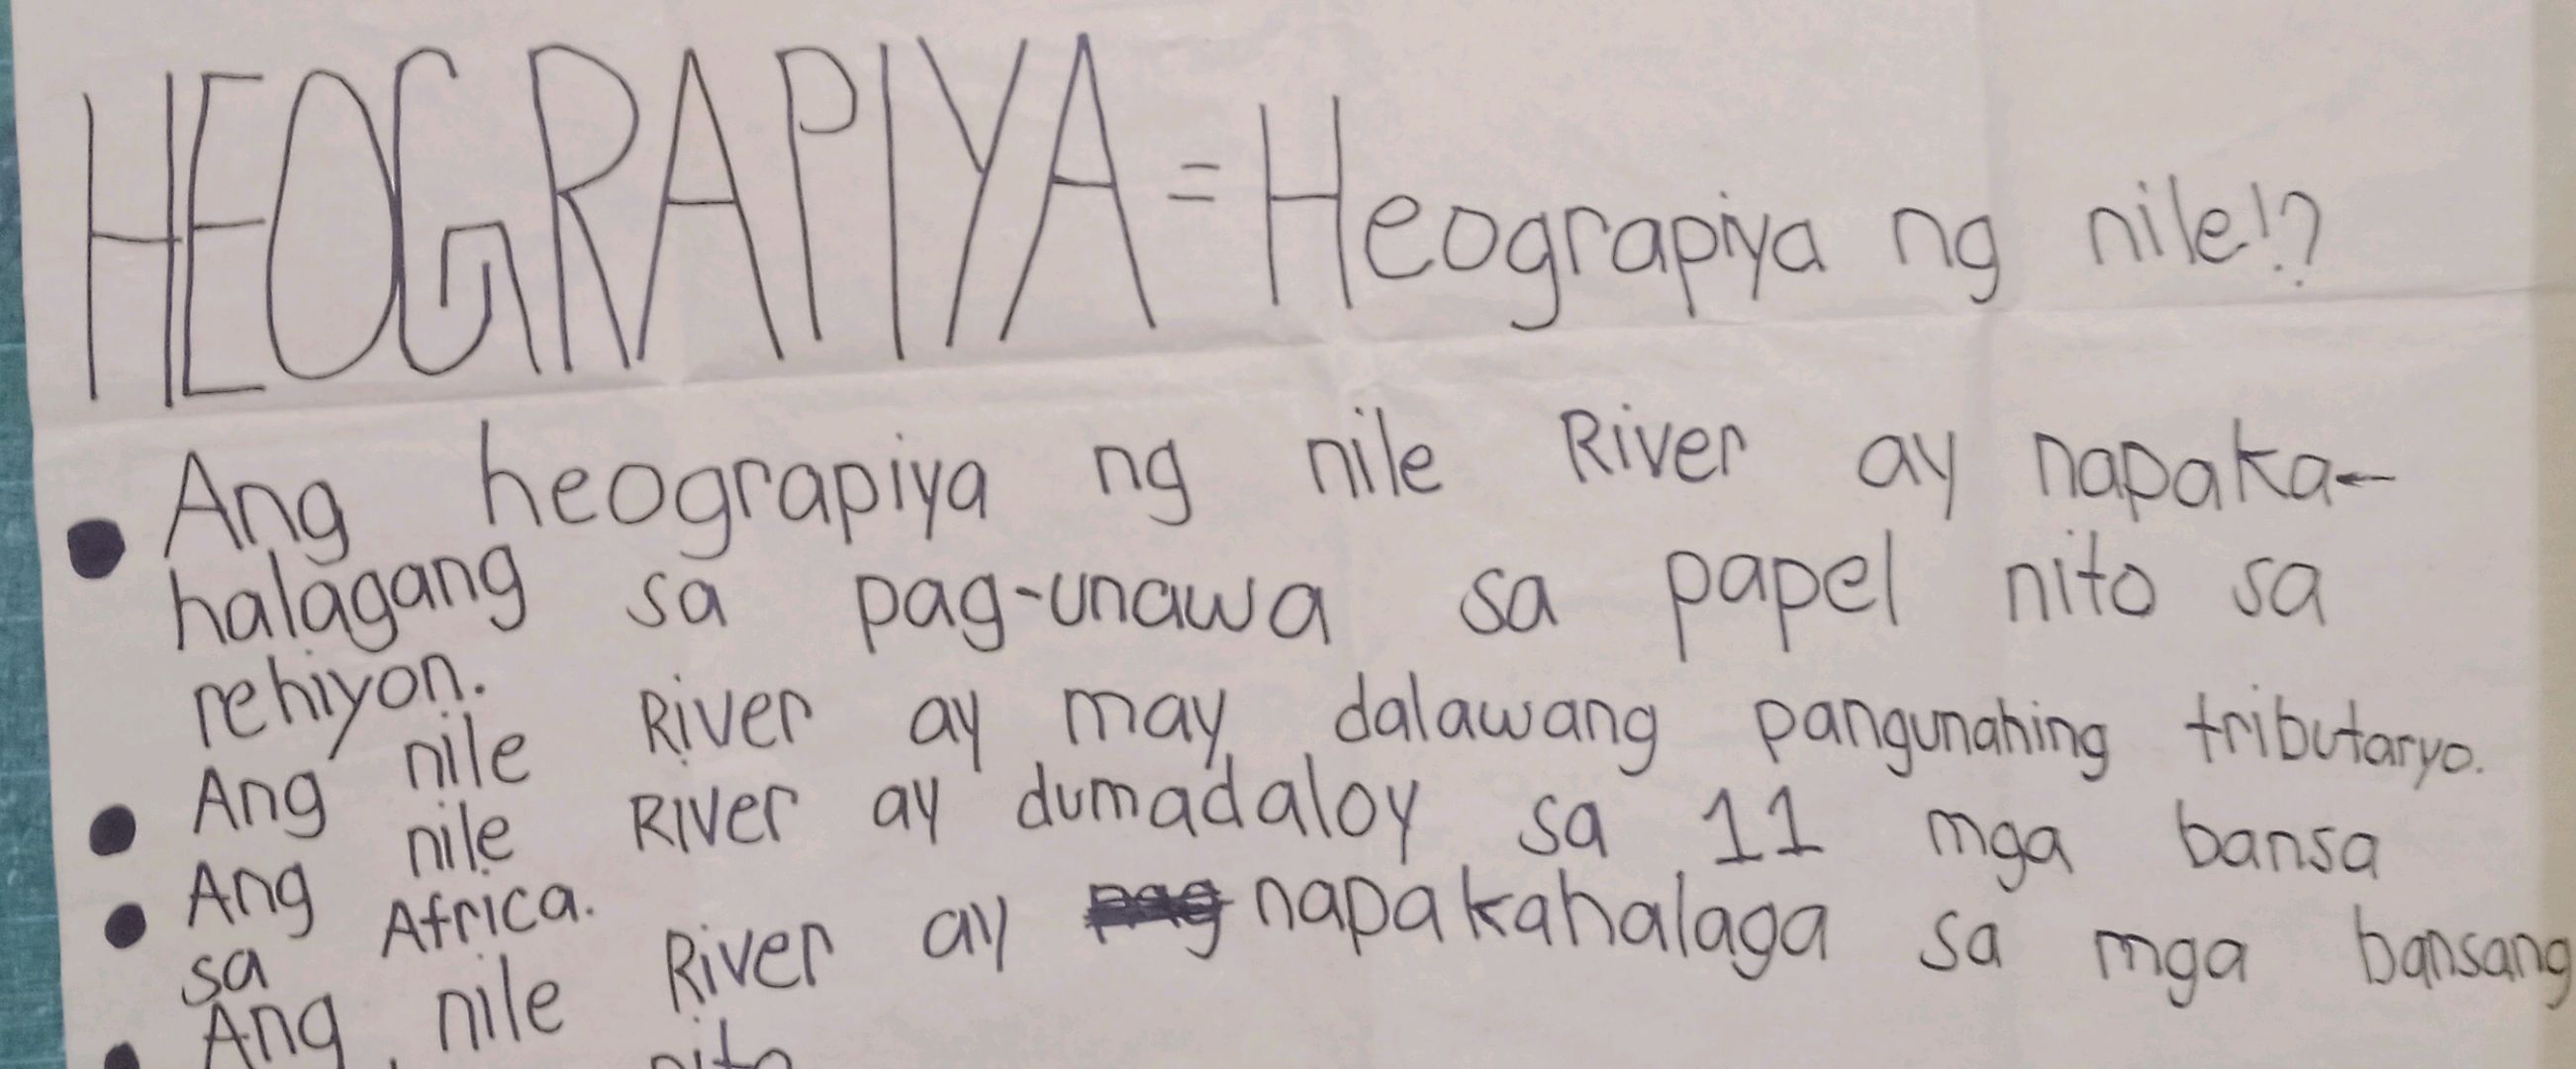 HEOGRAPIYA = Heograpiya ng nile!?
Ang heograpiya ng nile River ay napaka-
halagang sa pag-unawa sa papel nito sa
rehiyon.
Ang nile River ay may dalawang pangunahing tributaryo.
Ang nile River ay dumadaloy sa 11 mga bansa
sa Africa.
Ang nile River ay napakahalaga sa mga bansang
nito